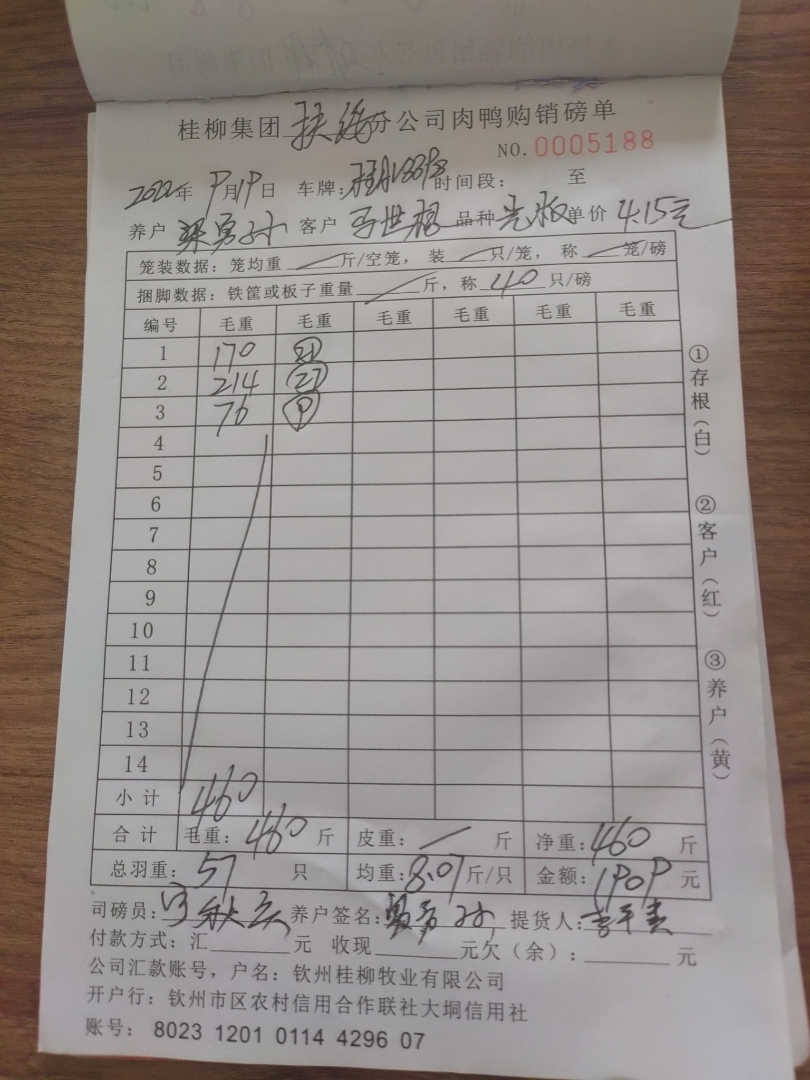 桂柳集团扶绥分公司肉鸭购销磅单
NO.0005188
2022年9月19日 车牌: 时间段: 至
养户 客户 品种 单价 4.15元
笼装数据:笼均重 斤/空笼,装 只/笼,称 笼/磅
捆脚数据:铁筐或板子重量 斤,称 40 只/磅
编号 毛重 毛重 毛重 毛重 毛重 毛重
1 170 21
2 214 27
3 76 9
4
5
6
7
8
9
10
11
12
13
14
小计 460
合计 毛重:460斤 皮重: 斤 净重:460斤
总羽重:57只 均重:8.07斤/只 金额:1909元
司磅员: 养户签名: 提货人:
付款方式:汇 元 收现 元欠(余): 元
公司汇款账号,户名:钦州桂柳牧业有限公司
开户行:钦州市区农村信用合作联社大垌信用社
账号:8023 1201 0114 4296 07
①存根(白)
②客户(红)
③养户(黄)